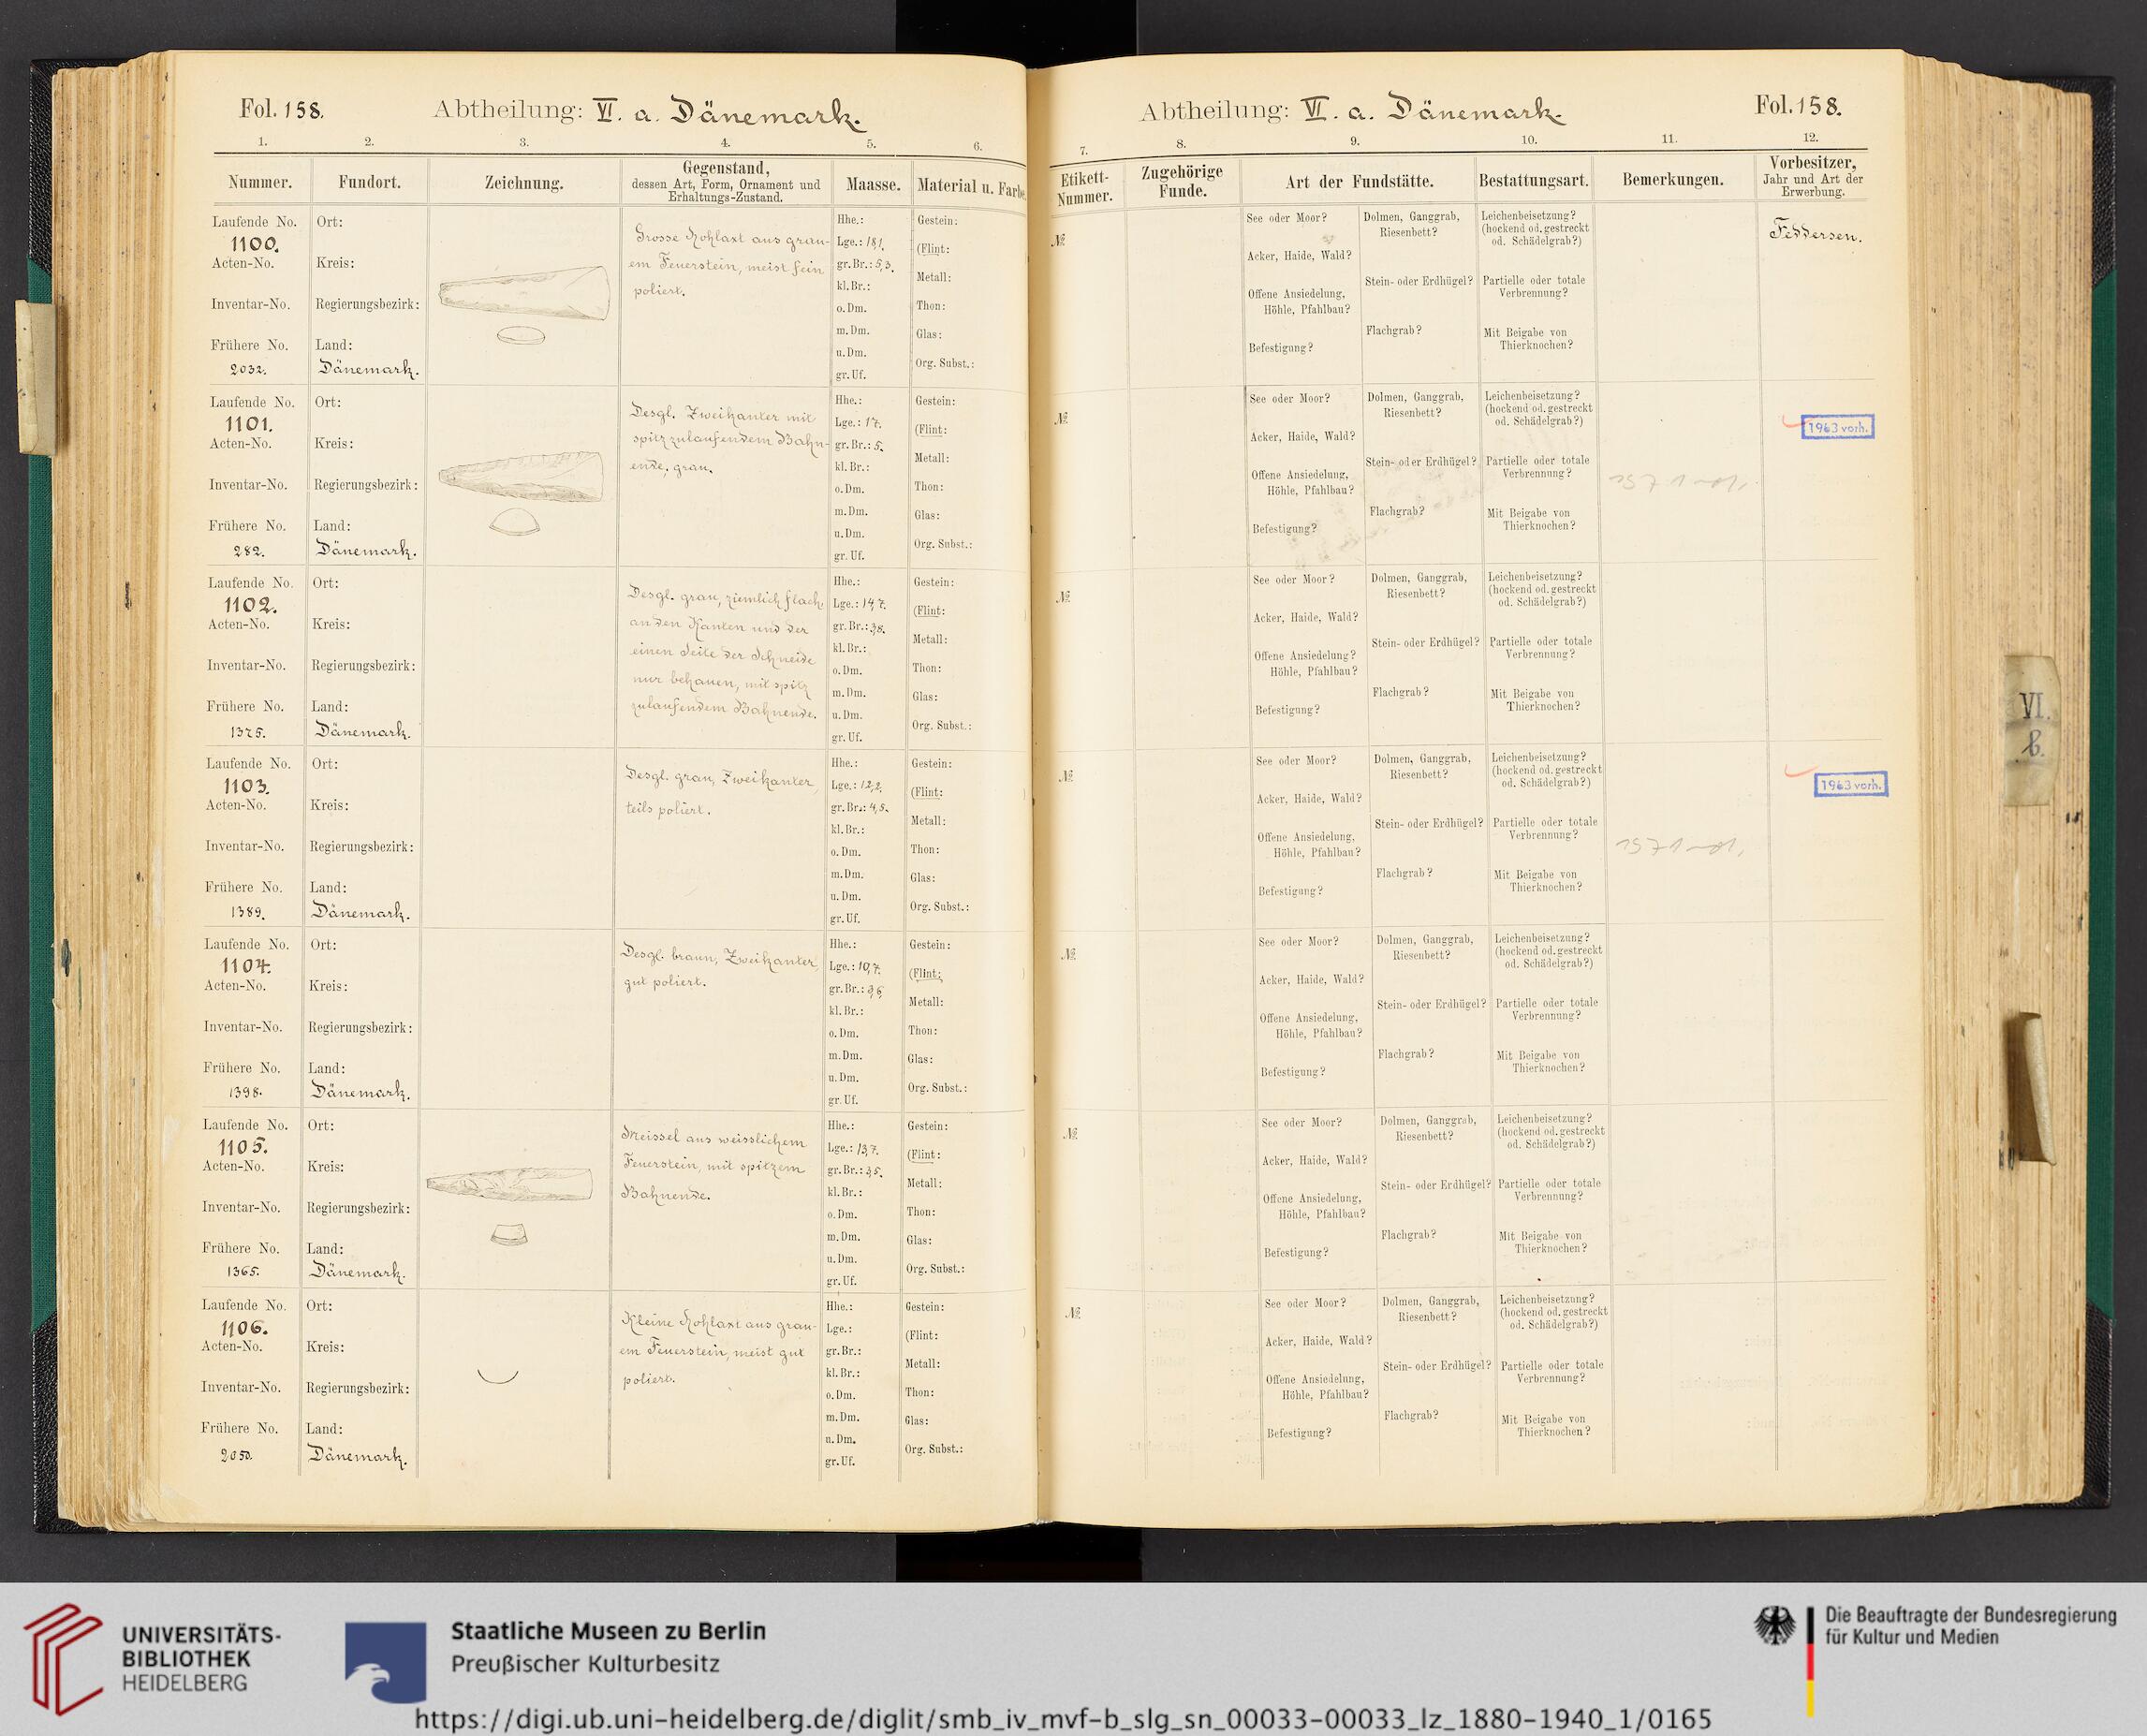 Fol. 158.
Abtheilung: VI. a. Dänemark.
1. 2. 3. 4. 5. 6.
Nummer. Fundort. Zeichnung. Gegenstand, dessen Art, Form, Ornament und Erhaltungs-Zustand. Maasse. Material u. Farbe
Laufende No. 1100.
Acten-No.
Inventar-No.
Frühere No. 2032.
Ort:
Kreis:
Regierungsbezirk:
Land: Dänemark.
Grosse Hohlaxt aus grau-
em Feuerstein, meist fein
poliert.
Hhe.:
Lge.: 18,1.
gr. Br.: 5,3.
kl. Br.:
o. Dm.
m. Dm.
u. Dm.
gr. Uf.
Gestein:
(Flint:
Metall:
Thon:
Glas:
Org. Subst.:
Laufende No. 1101.
Acten-No.
Inventar-No.
Frühere No. 282.
Ort:
Kreis:
Regierungsbezirk:
Land: Dänemark.
Desgl. Zweikanter mit
spitz zulaufendem Bahn-
ende, grau.
Hhe.:
Lge.: 17.
gr. Br.: 5.
kl. Br.:
o. Dm.
m. Dm.
u. Dm.
gr. Uf.
Gestein:
(Flint:
Metall:
Thon:
Glas:
Org. Subst.:
Laufende No. 1102.
Acten-No.
Inventar-No.
Frühere No. 1375.
Ort:
Kreis:
Regierungsbezirk:
Land: Dänemark.
Desgl. grau, ziemlich flach,
an den Kanten und der
einen Seite der Schneide
nur behauen, mit spitz
zulaufendem Bahnende.
Hhe.:
Lge.: 14,7.
gr. Br.: 3,8.
kl. Br.:
o. Dm.
m. Dm.
u. Dm.
gr. Uf.
Gestein:
(Flint:
Metall:
Thon:
Glas:
Org. Subst.:
Laufende No. 1103.
Acten-No.
Inventar-No.
Frühere No. 1389.
Ort:
Kreis:
Regierungsbezirk:
Land: Dänemark.
Desgl. grau, Zweikanter,
teils poliert.
Hhe.:
Lge.: 12,2.
gr. Br.: 4,5.
kl. Br.:
o. Dm.
m. Dm.
u. Dm.
gr. Uf.
Gestein:
(Flint:
Metall:
Thon:
Glas:
Org. Subst.:
Laufende No. 1104.
Acten-No.
Inventar-No.
Frühere No. 1398.
Ort:
Kreis:
Regierungsbezirk:
Land: Dänemark.
Desgl. braun, Zweikanter,
gut poliert.
Hhe.:
Lge.: 10,7.
gr. Br.: 3,6.
kl. Br.:
o. Dm.
m. Dm.
u. Dm.
gr. Uf.
Gestein:
(Flint:
Metall:
Thon:
Glas:
Org. Subst.:
Laufende No. 1105.
Acten-No.
Inventar-No.
Frühere No. 1365.
Ort:
Kreis:
Regierungsbezirk:
Land: Dänemark.
Meissel aus weisslichem
Feuerstein, mit spitzem
Bahnende.
Hhe.:
Lge.: 13,7.
gr. Br.: 3,5.
kl. Br.:
o. Dm.
m. Dm.
u. Dm.
gr. Uf.
Gestein:
(Flint:
Metall:
Thon:
Glas:
Org. Subst.:
Laufende No. 1106.
Acten-No.
Inventar-No.
Frühere No. 2050.
Ort:
Kreis:
Regierungsbezirk:
Land: Dänemark.
Kleine Hohlaxt aus grau-
em Feuerstein, meist gut
poliert.
Hhe.:
Lge.:
gr. Br.:
kl. Br.:
o. Dm.
m. Dm.
u. Dm.
gr. Uf.
Gestein:
(Flint:
Metall:
Thon:
Glas:
Org. Subst.:
Abtheilung: VI. a. Dänemark.
Fol. 158.
7. 8. 9. 10. 11. 12.
Etikett-Nummer. Zugehörige Funde. Art der Fundstätte. Bestattungsart. Bemerkungen. Vorbesitzer, Jahr und Art der Erwerbung.
№
See oder Moor?
Acker, Haide, Wald?
Offene Ansiedelung,
Höhle, Pfahlbau?
Befestigung?
Dolmen, Ganggrab,
Riesenbett?
Stein- oder Erdhügel?
Flachgrab?
Leichenbeisetzung?
(hockend od. gestreckt
od. Schädelgrab?)
Partielle oder totale
Verbrennung?
Mit Beigabe von
Thierknochen?
Feddersen.
№
See oder Moor?
Acker, Haide, Wald?
Offene Ansiedelung,
Höhle, Pfahlbau?
Befestigung?
Dolmen, Ganggrab,
Riesenbett?
Stein- oder Erdhügel?
Flachgrab?
Leichenbeisetzung?
(hockend od. gestreckt
od. Schädelgrab?)
Partielle oder totale
Verbrennung?
Mit Beigabe von
Thierknochen?
1963 vorh.
№
See oder Moor?
Acker, Haide, Wald?
Offene Ansiedelung?
Höhle, Pfahlbau?
Befestigung?
Dolmen, Ganggrab,
Riesenbett?
Stein- oder Erdhügel?
Flachgrab?
Leichenbeisetzung?
(hockend od. gestreckt
od. Schädelgrab?)
Partielle oder totale
Verbrennung?
Mit Beigabe von
Thierknochen?
№
See oder Moor?
Acker, Haide, Wald?
Offene Ansiedelung,
Höhle, Pfahlbau?
Befestigung?
Dolmen, Ganggrab,
Riesenbett?
Stein- oder Erdhügel?
Flachgrab?
Leichenbeisetzung?
(hockend od. gestreckt
od. Schädelgrab?)
Partielle oder totale
Verbrennung?
Mit Beigabe von
Thierknochen?
1963 vorh.
№
See oder Moor?
Acker, Haide, Wald?
Offene Ansiedelung,
Höhle, Pfahlbau?
Befestigung?
Dolmen, Ganggrab,
Riesenbett?
Stein- oder Erdhügel?
Flachgrab?
Leichenbeisetzung?
(hockend od. gestreckt
od. Schädelgrab?)
Partielle oder totale
Verbrennung?
Mit Beigabe von
Thierknochen?
№
See oder Moor?
Acker, Haide, Wald?
Offene Ansiedelung,
Höhle, Pfahlbau?
Befestigung?
Dolmen, Ganggrab,
Riesenbett?
Stein- oder Erdhügel?
Flachgrab?
Leichenbeisetzung?
(hockend od. gestreckt
od. Schädelgrab?)
Partielle oder totale
Verbrennung?
Mit Beigabe von
Thierknochen?
№
See oder Moor?
Acker, Haide, Wald?
Offene Ansiedelung,
Höhle, Pfahlbau?
Befestigung?
Dolmen, Ganggrab,
Riesenbett?
Stein- oder Erdhügel?
Flachgrab?
Leichenbeisetzung?
(hockend od. gestreckt
od. Schädelgrab?)
Partielle oder totale
Verbrennung?
Mit Beigabe von
Thierknochen?
VI.
b.
UNIVERSITÄTS-
BIBLIOTHEK
HEIDELBERG
Staatliche Museen zu Berlin
Preußischer Kulturbesitz
Die Beauftragte der Bundesregierung
für Kultur und Medien
https://digi.ub.uni-heidelberg.de/diglit/smb_iv_mvf-b_slg_sn_00033-00033_lz_1880-1940_1/0165